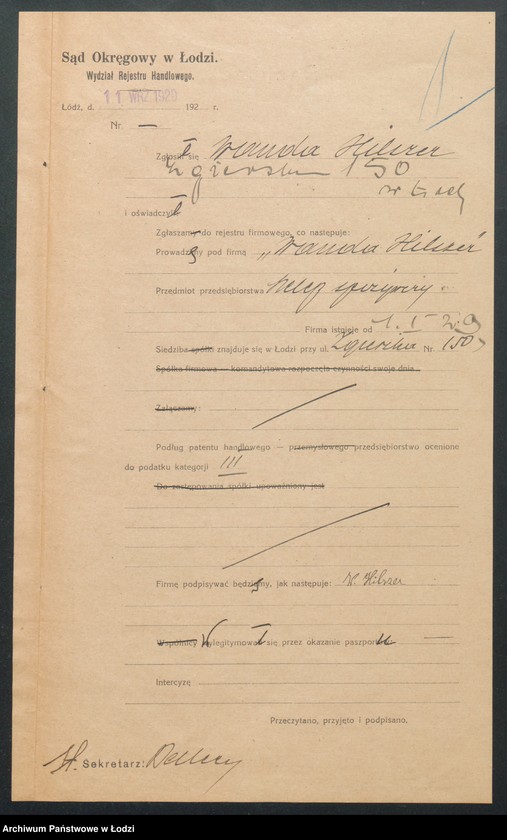 Sąd Okręgowy w Łodzi.
Wydział Rejestru Handlowego.
Łódź, d. 11 WRZ 1929 192 r.
Nr. —
Zgłosił się Wanda Hilszer
Zgierska 150
w Łodzi
i oświadczył
Zgłaszamy do rejestru firmowego, co następuje:
Prowadzimy pod firmą „Wanda Hilszer
Przedmiot przedsiębiorstwa sklep spożywczy
Firma istnieje od 1. I 29
Siedziba spółki znajduje się w Łodzi przy ul. Zgierska Nr. 150
Spółka firmowa — komandytowa rozpoczęła czynności swoje dnia
Załączamy:
Podług patentu handlowego — przemysłowego przedsiębiorstwo ocenione
do podatku kategorji III
Do zastępowania spółki upoważniony jest
Firmę podpisywać będziemy, jak następuje: W. Hilszer
Wspólnicy wylegitymował się przez okazanie paszportu —
Intercyzę
Przeczytano, przyjęto i podpisano,
St. Sekretarz:
Archiwum Państwowe w Łodzi